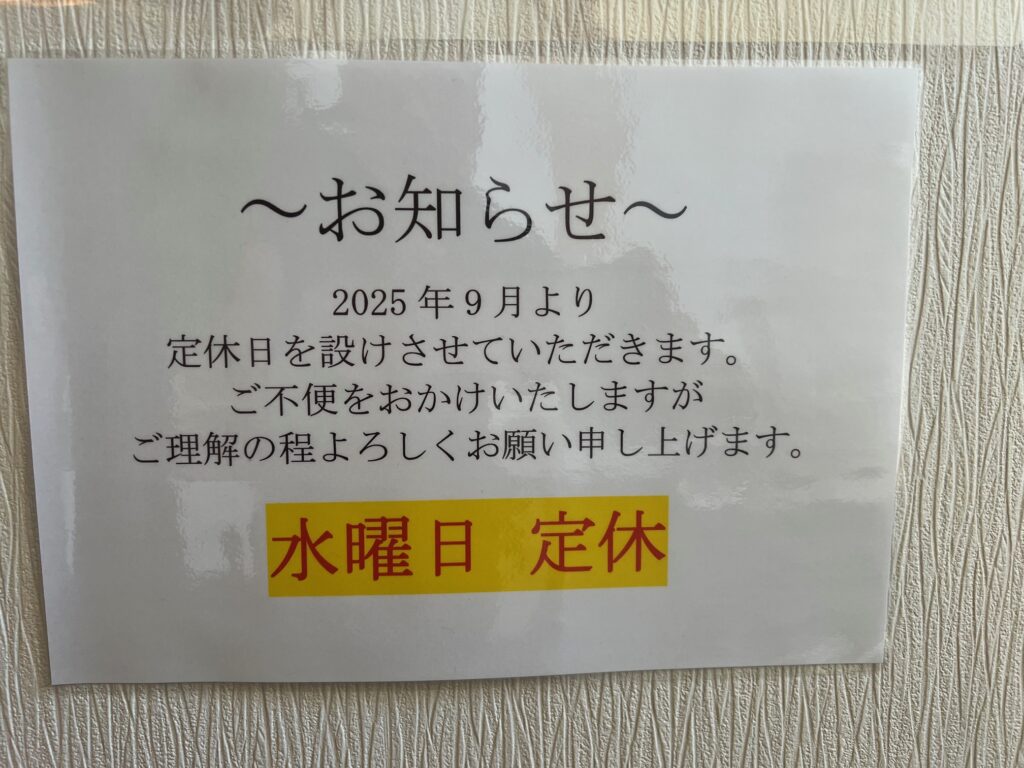 ～お知らせ～
2025年9月より
定休日を設けさせていただきます。
ご不便をおかけいたしますが
ご理解の程よろしくお願い申し上げます。
水曜日 定休